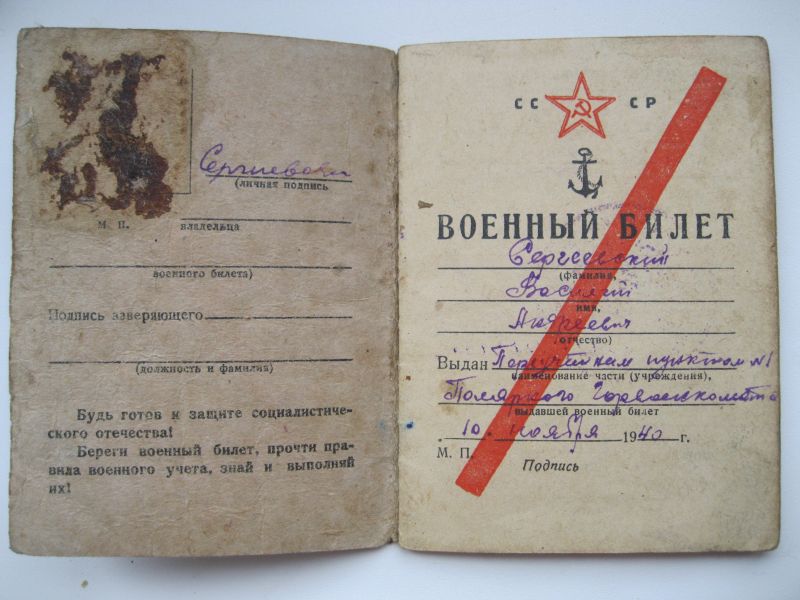 Сергиевский
(личная подпись
М. П. владельца
военного билета)
Подпись заверяющего
(должность и фамилия)
Будь готов к защите социалистиче-
ского отечества!
Береги военный билет, прочти пра-
вила военного учета, знай и выполняй
их!
СС СР
ВОЕННЫЙ БИЛЕТ
Сергиевский
(фамилия,
Василий
имя,
Андреевич
отчество)
Выдан пунктом №1
наименование части (учреждения),
Полярного Горвоенкомата
выдавшей военный билет
10 ноября 1940 г.
М. П.
Подпись